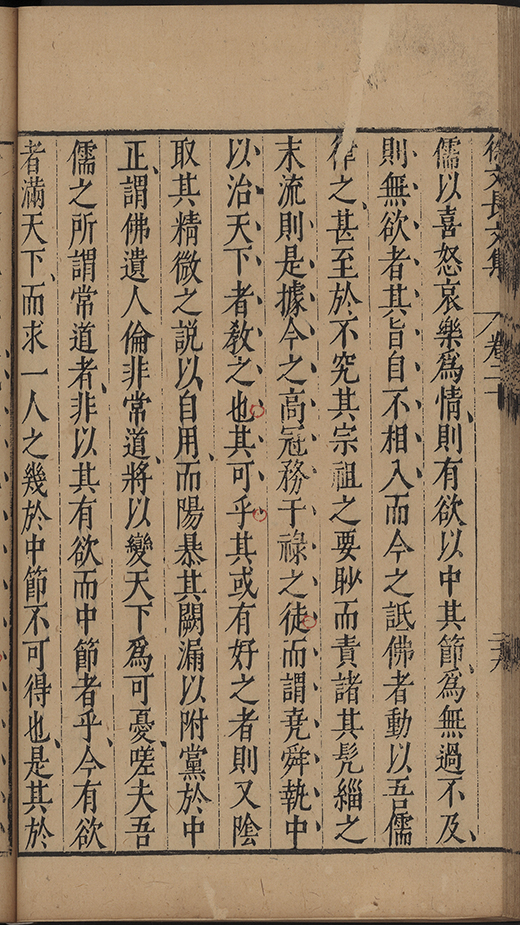 徐文長文集 卷二十
儒以喜怒哀樂爲情則有欲以中其節爲無過不及
則無欲者其旨自不相入而今之詆佛者動以吾儒
律之甚至於不究其宗祖之要眇而責諸其髡緇之
末流則是據今之高冠務干祿之徒而謂堯舜執中
以治天下者敎之也其可乎其或有好之者則又陰
取其精微之説以自用而陽暴其闕漏以附黨於中
正謂佛遺人倫非常道將以變天下爲可憂嗟夫吾
儒之所謂常道者非以其有欲而中節者乎今有欲
者滿天下而求一人之幾於中節不可得也是其於